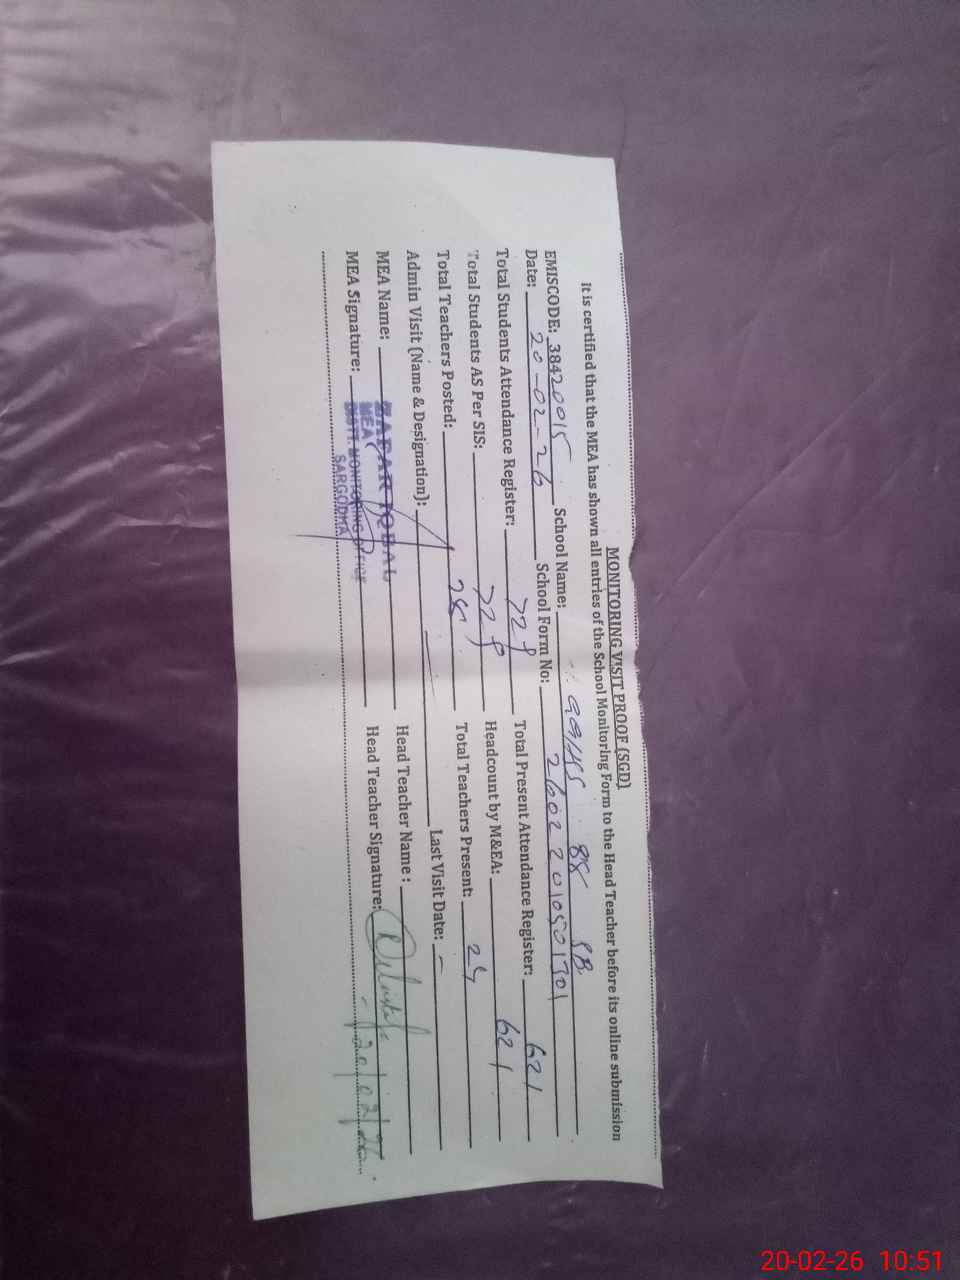 MONITORING VISIT PROOF (SGD)
It is certified that the MEA has shown all entries of the School Monitoring Form to the Head Teacher before its online submission
EMISCODE: 38420015 School Name: GGHHS 88 SB
Date: 20-02-26 School Form No: 2602201050
Total Students Attendance Register: Total Present Attendance Register: 621
Total Students AS Per SIS: Headcount by M&EA: 621
Total Teachers Posted: Total Teachers Present: 24
Admin Visit (Name & Designation): Last Visit Date: -
MEA Name: ZAFAR IQBAL Head Teacher Name :
MEA
MEA Signature: DISTT. MONITORING OFFICE Head Teacher Signature:
SARGODHA
20/02/26
20-02-26 10:51